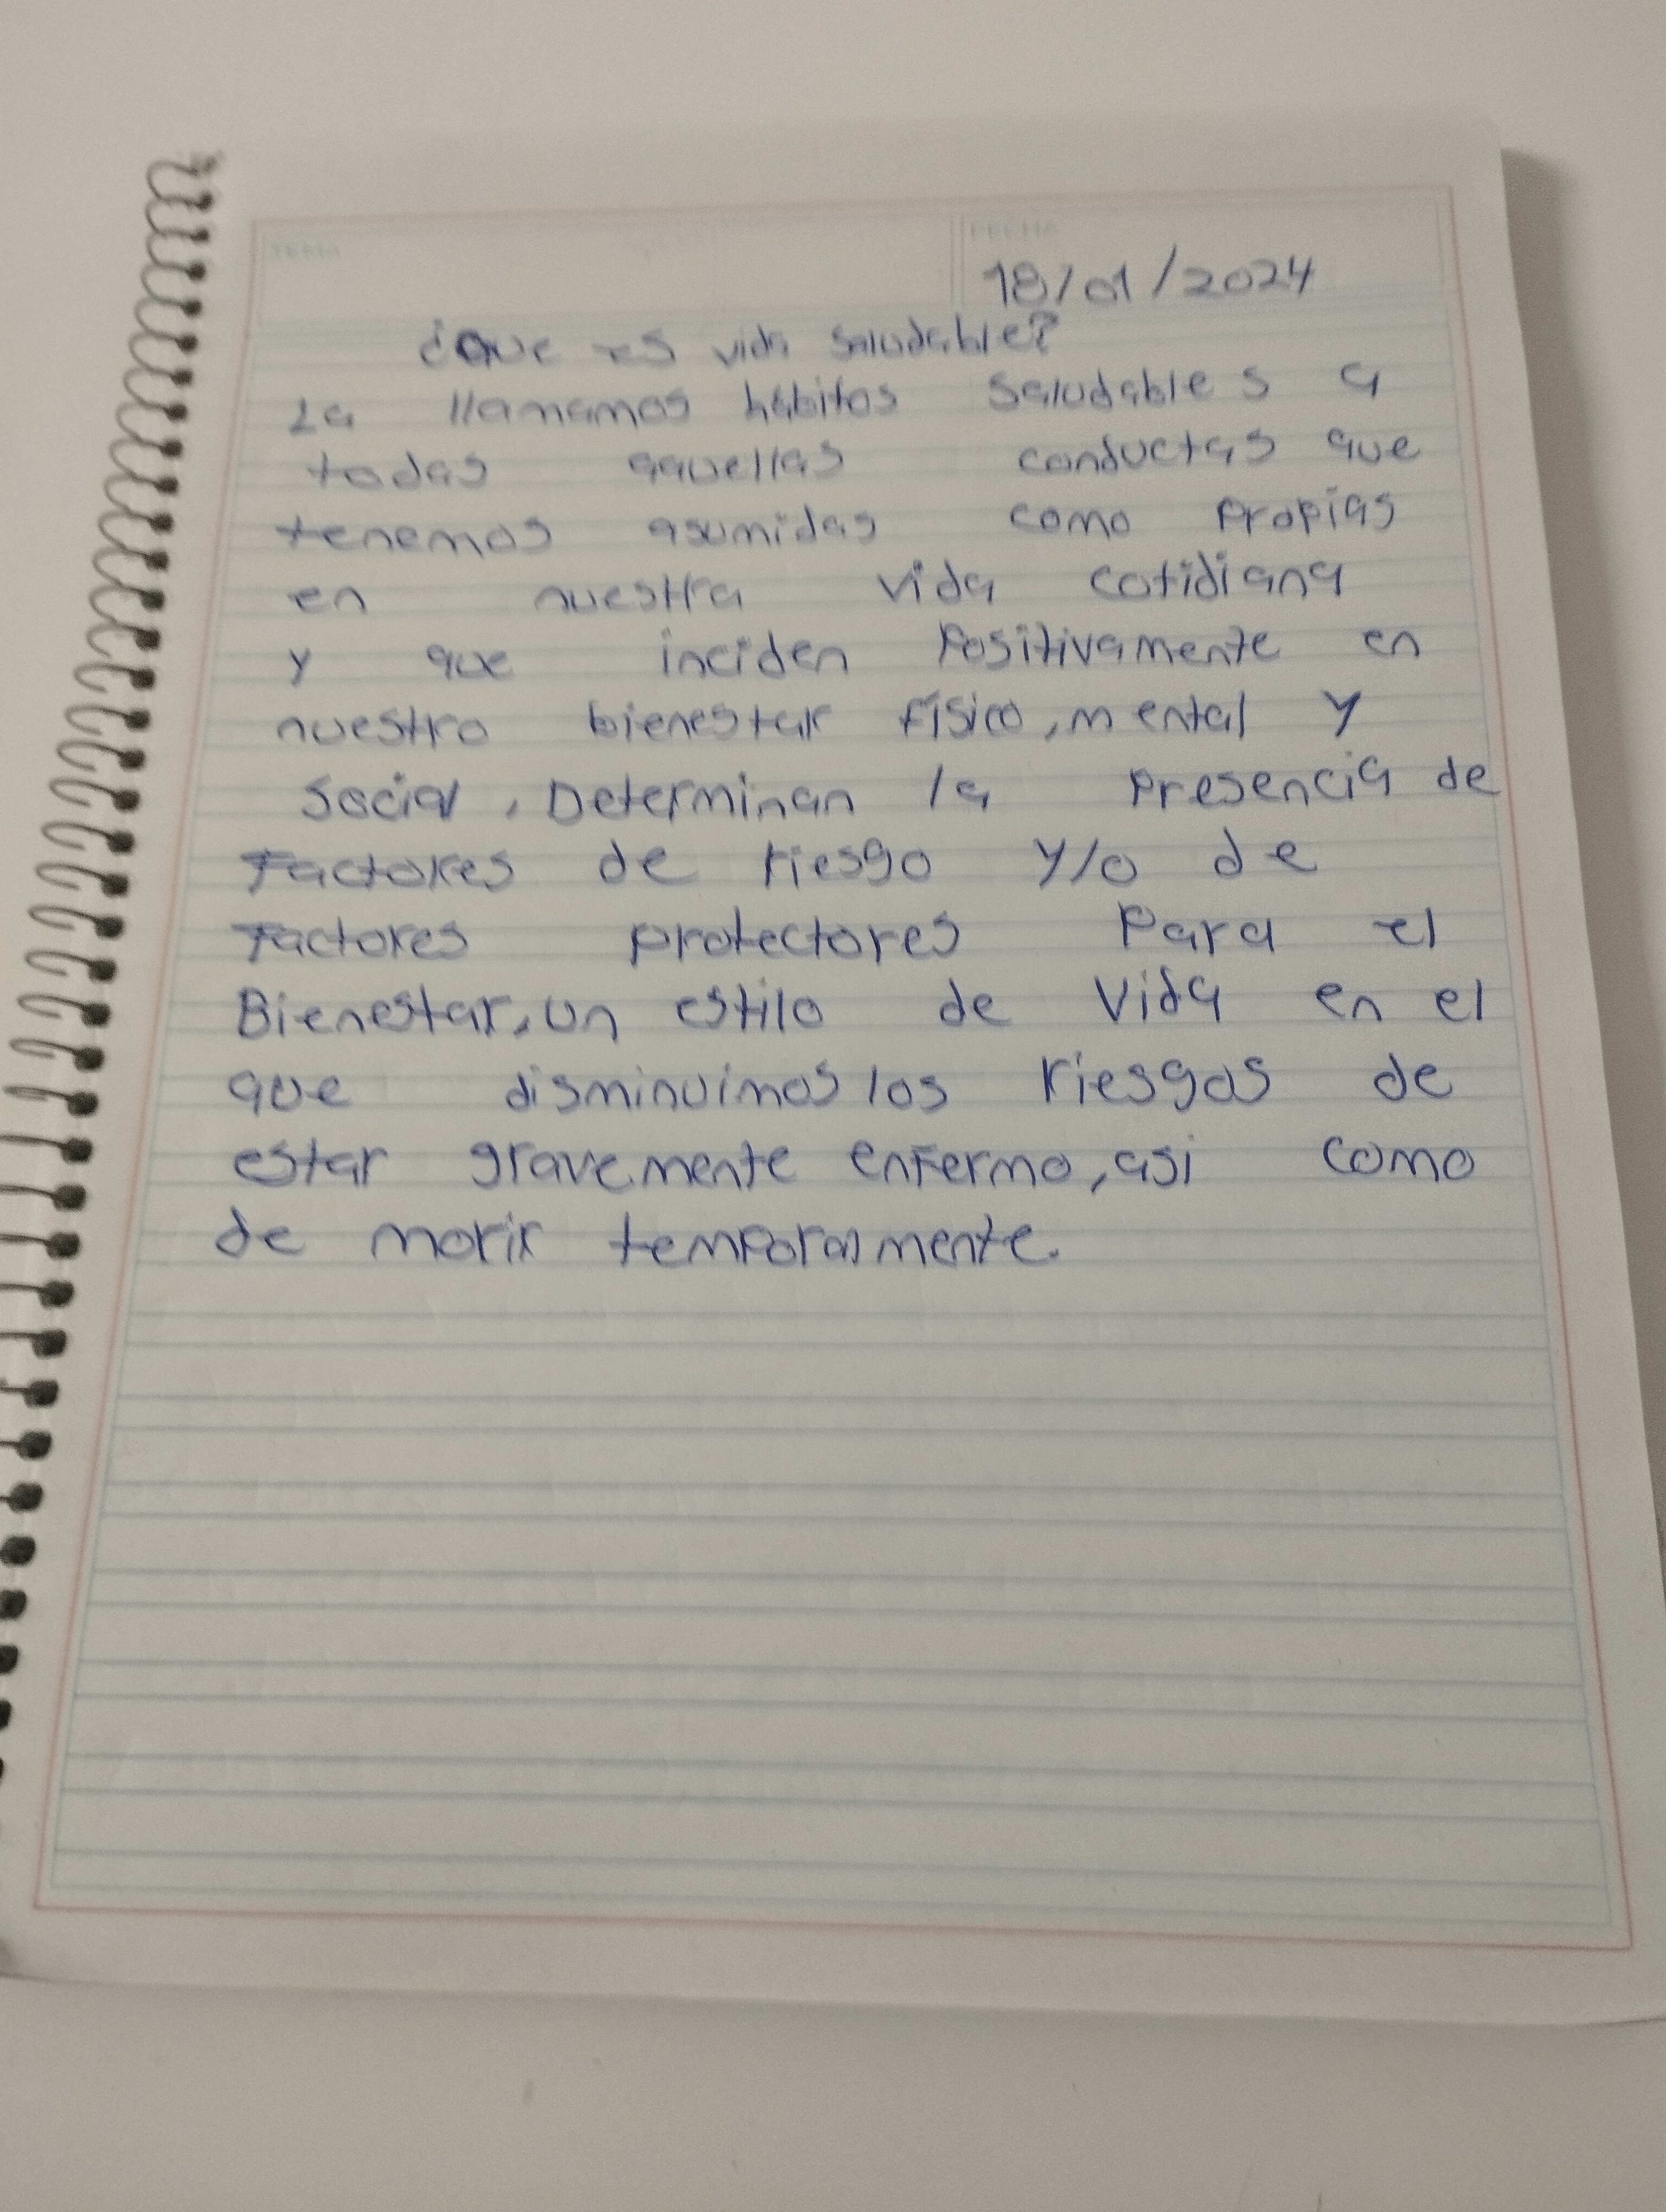 TEMA
FECHA
18/01/2024
¿Que es vida saludable?
La llamamos hábitos saludables a
todas aquellas conductas que
tenemos asumidas como propias
en nuestra vida cotidiana
y que inciden Positivamente en
nuestro bienestar físico, mental y
Social, Determinan la Presencia de
Factores de riesgo y/o de
Factores protectores Para el
Bienestar, un estilo de Vida en el
que disminuimos los riesgos de
estar gravemente enfermo, asi como
de morir temporalmente.